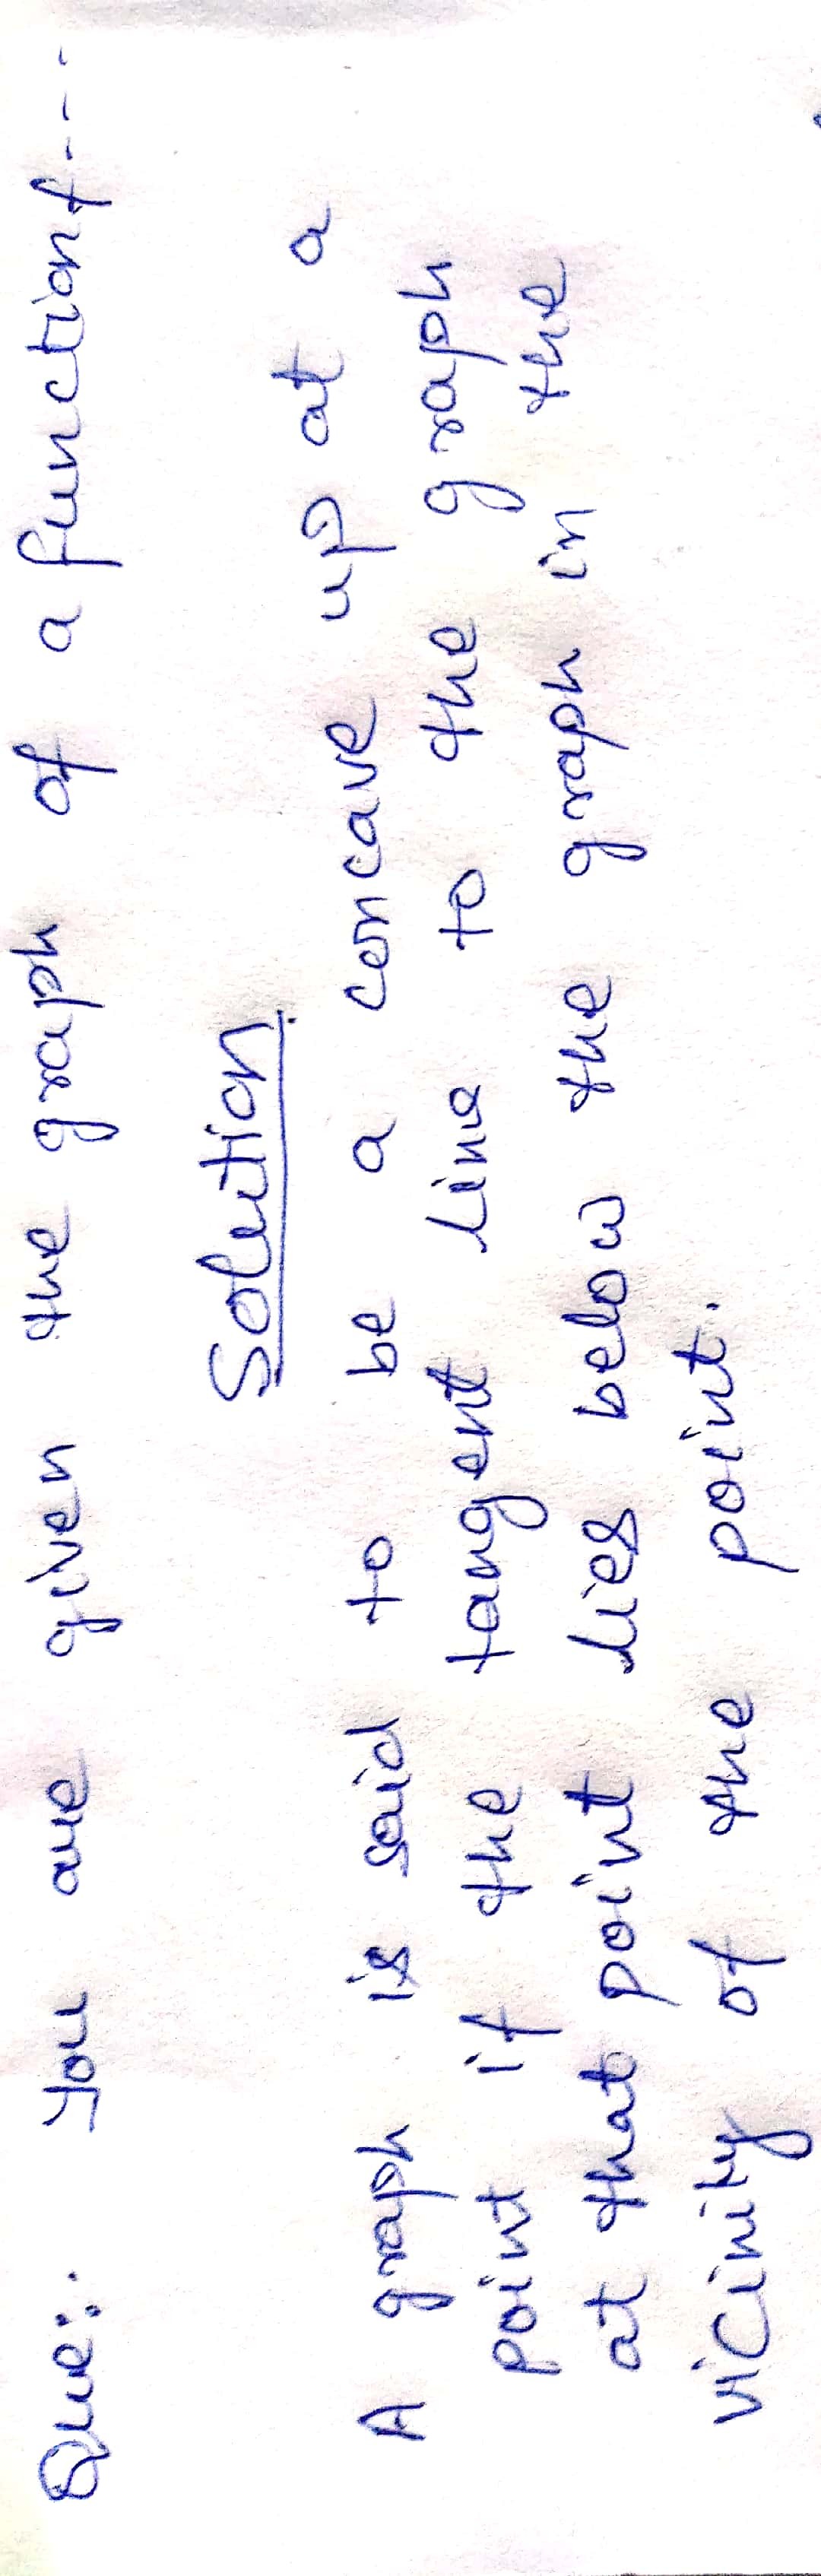 Que:. You are given the graph of a function f ---
Solution
A graph is said to be a concave up at a
point if the tangent line to the graph
at that point lies below the graph in the
vicinity of the point.